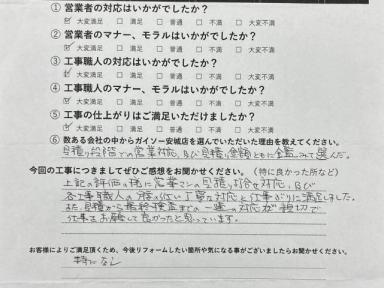 ① 営業者の対応はいかがでしたか？
☑ 大変満足 □ 満足 □ 普通 □ 不満 □ 大変不満
② 営業者のマナー、モラルはいかがでしたか？
☑ 大変満足 □ 満足 □ 普通 □ 不満 □ 大変不満
③ 工事職人の対応はいかがでしたか？
☑ 大変満足 □ 満足 □ 普通 □ 不満 □ 大変不満
④ 工事職人のマナー、モラルはいかがでしたか？
☑ 大変満足 □ 満足 □ 普通 □ 不満 □ 大変不満
⑤ 工事の仕上がりはご満足いただけましたか？
☑ 大変満足 □ 満足 □ 普通 □ 不満 □ 大変不満
⑥ 数ある会社の中からガイソー安城店を選んでいただいた理由を教えてください。
見積り段階での営業対応、及び見積り金額ともに鑑みて選んだ。
今回の工事につきましてぜひご感想をお聞かせください。（特に良かった所など）
上記の評価の様に営業マンの見積、打合せ対応、及び
各工事職人の 丁寧な対応と仕事ぶりに満足しました。
また、見積から最終検査までの一連の対応が親切で
仕事をお願いして良かったと思っています。
お客様によりご満足頂くため、今後リフォームしたい箇所や気になる事がございましたらお聞かせください。
特になし